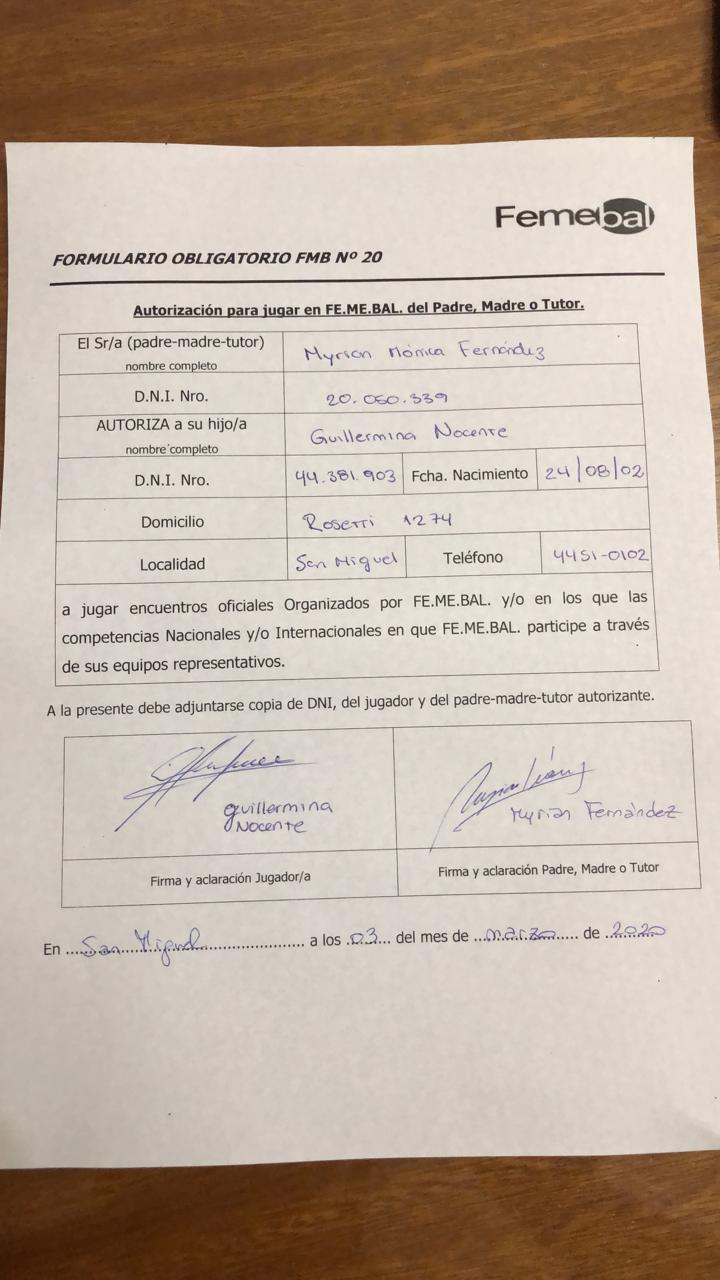 Femebal
FORMULARIO OBLIGATORIO FMB Nº 20
Autorización para jugar en FE.ME.BAL. del Padre, Madre o Tutor.
El Sr/a (padre-madre-tutor)
nombre completo
Myrian Mónica Fernández
D.N.I. Nro.
20.050.339
AUTORIZA a su hijo/a
nombre completo
Guillermina Nocente
D.N.I. Nro.
44.381.903
Fcha. Nacimiento
24/08/02
Domicilio
Rosetti 1274
Localidad
San Miguel
Teléfono
4451-0102
a jugar encuentros oficiales Organizados por FE.ME.BAL. y/o en los que las
competencias Nacionales y/o Internacionales en que FE.ME.BAL. participe a través
de sus equipos representativos.
A la presente debe adjuntarse copia de DNI, del jugador y del padre-madre-tutor autorizante.
guillermina
Nocente
Myrian Fernández
Firma y aclaración Jugador/a
Firma y aclaración Padre, Madre o Tutor
En San Miguel a los 03 del mes de marzo de 2020